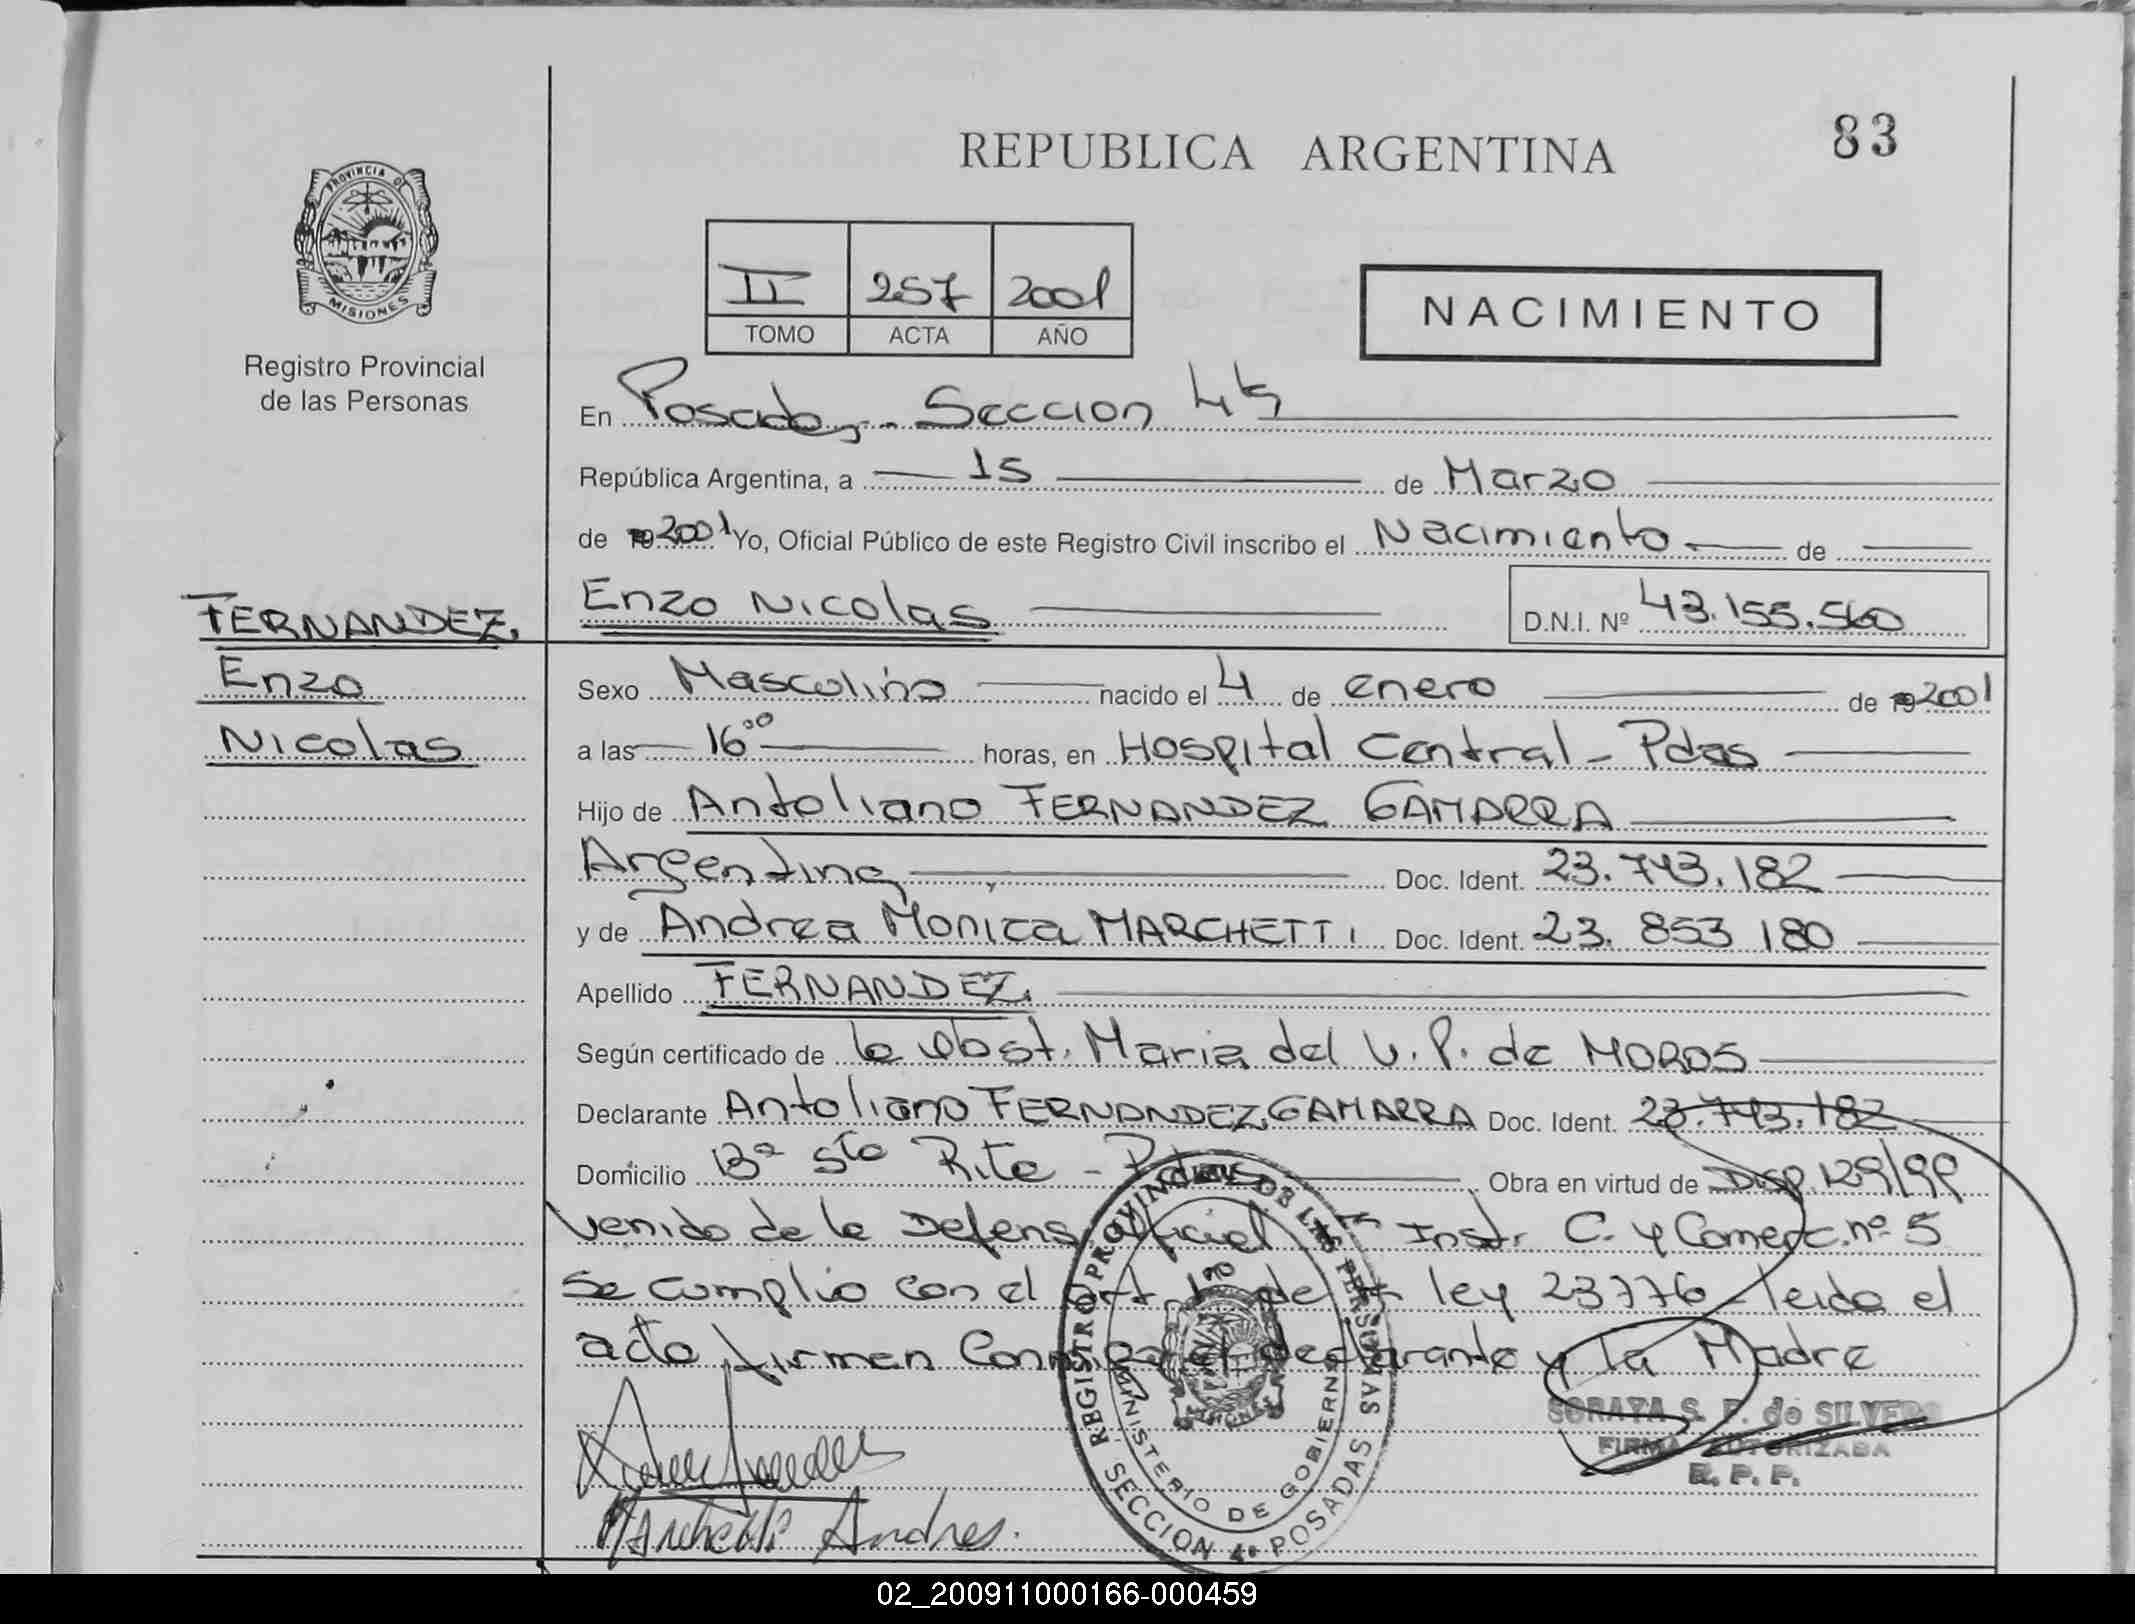 REPUBLICA ARGENTINA
83
PROVINCIA DE
MISIONES
Registro Provincial
de las Personas
II 257 2001
TOMO ACTA AÑO
NACIMIENTO
En Posadas - Seccion 4ta
República Argentina, a 15 de Marzo
de 19 2001 Yo, Oficial Público de este Registro Civil inscribo el Nacimiento de
Enzo Nicolas D.N.I. Nº 43.155.560
FERNANDEZ,
Enzo
Nicolas
Sexo Masculino nacido el 4 de enero de 19 2001
a las 16 00 horas, en Hospital Central - Pdas
Hijo de Antoliano FERNANDEZ GAMARRA
Argentina Doc. Ident. 23.743.182
y de Andrea Monica MARCHETTI Doc. Ident. 23.853 180
Apellido FERNANDEZ
Según certificado de la obst. Maria del V. P. de MOROS
Declarante Antoliano FERNANDEZ GAMARRA Doc. Ident. 23.743.182
Domicilio Bº Sta Rita - Pdas Obra en virtud de Disp. 129/99
venido de la Defens Oficial Instr. C. y Comerc. nº 5
Se cumplio con el art. 1 de la ley 23776 - leida el
acta firman conmigo el declarante y la Madre
SORAYA S. F. de SILVERO
FIRMA AUTORIZADA
R. P. P.
Marchetti Andrea.
REGISTRO PROVINCIAL DE LAS PERSONAS
MINISTERIO DE GOBIERNO
MISIONES
SECCION 4ª POSADAS
02_200911000166-000459